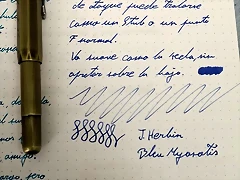 de Toque puede tratarse
como un Stub o un punto
F normal.
Va suave como la seda, sin
apretar sobre la hoja.
J. Herbin
Bleu Myosotis
amigo.
pero